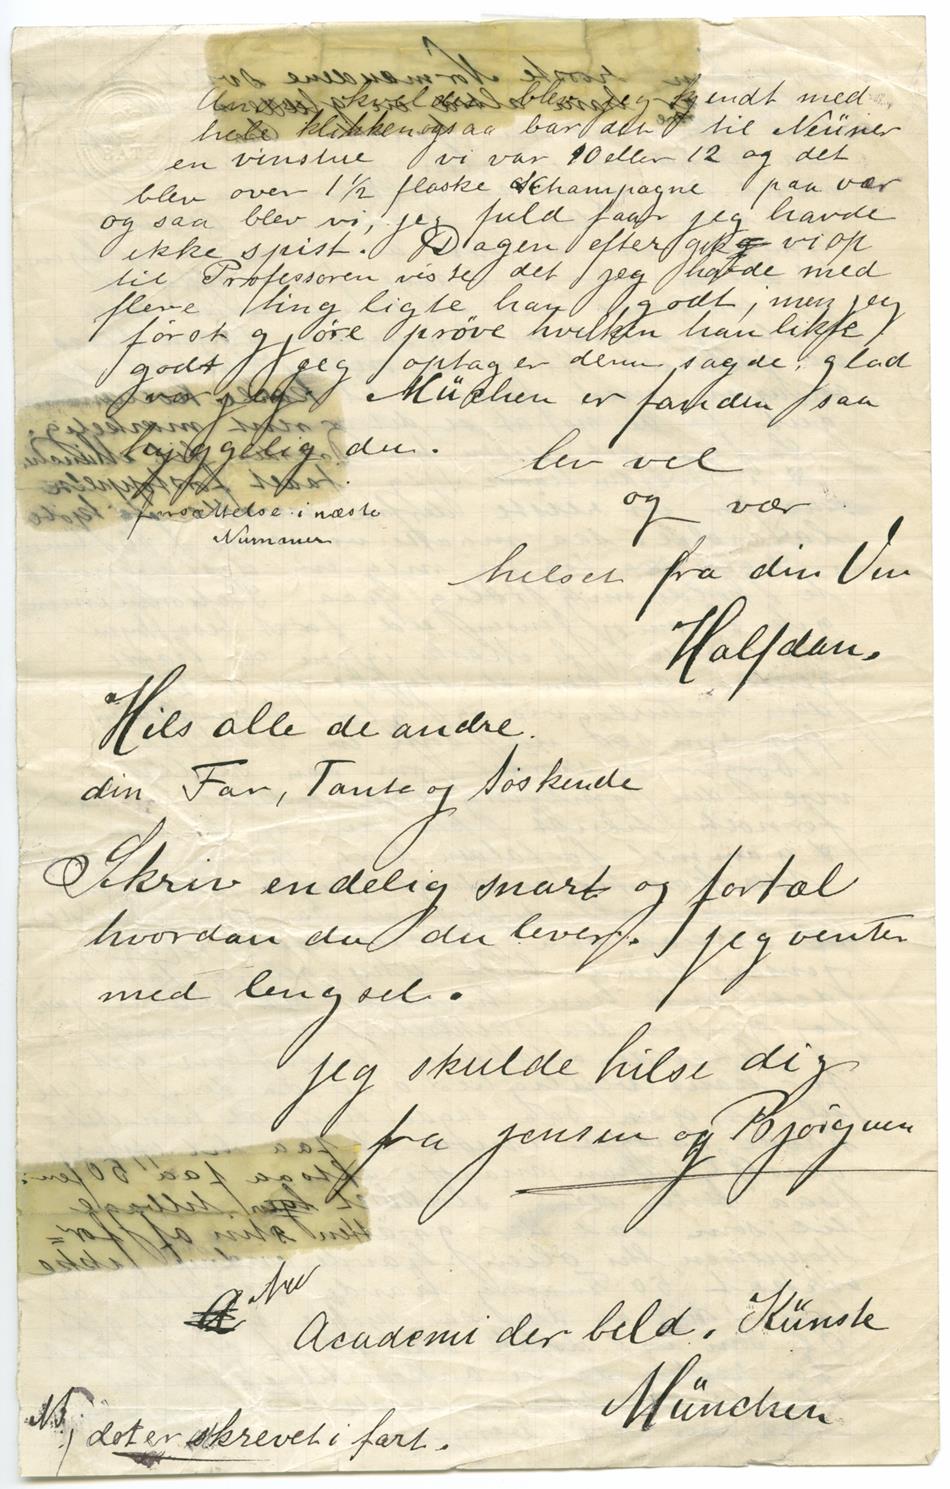 blev jeg kjendt med
hele klikken ogsaa bar det til Neüner
en vinstue vi var 10 eller 12 og det
blev over 1½ flaske Champagne paa vær
og saa blev vi, jeg fuld faar jeg havde
ikke spist. Dagen efter gik vi op
til Professoren viste det jeg hadde med
flere ting ligte han godt, men jeg
først gjøre prøve hvilken han likte
godt jeg optager dem sagde, glad
var jeg München er fanden saa
hyggelig du.
lev vel
forsættelse i næste
Nummer
og vær
hilset fra din Ven
Halfdan.
Hils alle de andre.
din Far, Tante og Søskende
Skriv endelig snart og fortæl
hvordan du du lever. jeg venter
med lengsel.
jeg skulde hilse dig
fra Jensen og Bjørgum
Academi der beld. Künste
München
NB
det er skrevet i fart.